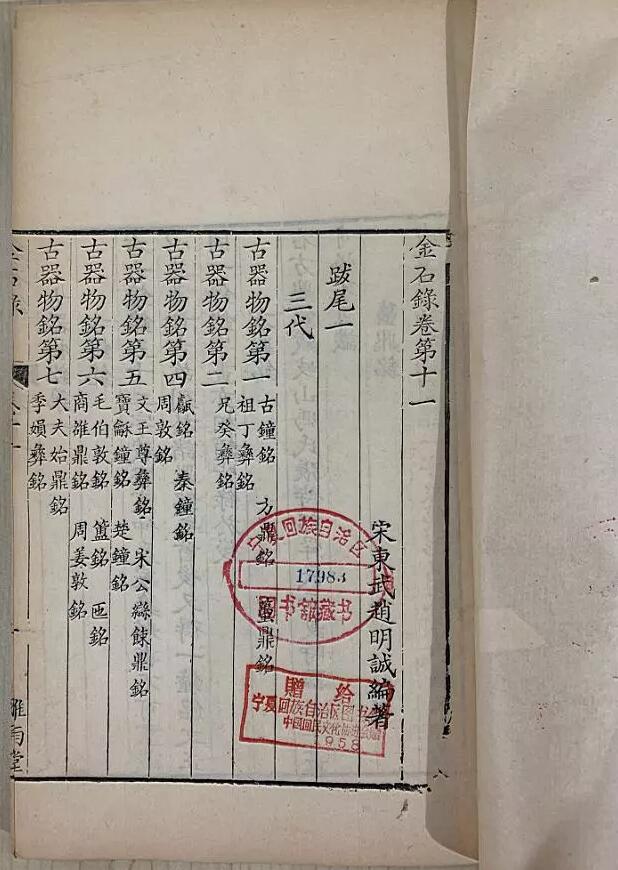 金石錄卷第十一
宋東武趙明誠編著
跋尾一
三代
古器物銘第一 古鐘銘 方鼎銘 蠆鼎銘
祖丁彝銘
古器物銘第二 兄癸彝銘
古器物銘第四 甗銘 秦鐘銘
周敦銘
古器物銘第五 文王尊彝銘 宋公䜌餗鼎銘
寶龢鐘銘 楚鐘銘
古器物銘第六 毛伯敦銘 簠銘 匜銘
商雒鼎銘 周姜敦銘
古器物銘第七 大夫始鼎銘
季娟彝銘
金石錄
卷十一
雅雨堂
宁夏回族自治区
17983
图书馆藏书
贈给
宁夏回族自治区图书
中国回民文化协进会
1958